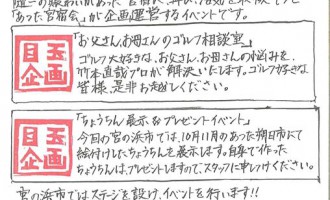 「あった宮宿会」が企画運営するイベントです。
目玉企画
「お父さん、お母さんのゴルフ相談室」
ゴルフ大好きな、お父さん、お母さんの悩みを、
竹本直哉プロが解決いたします。ゴルフ好きな
皆様、是非お越しください。
目玉企画
「ちょうちん展示&プレゼントイベント」
今回の宮の浜市では、10月11月のあった朔日市にて
絵付けしたちょうちんを展示します。自身で作った
ちょうちんは、プレゼントしますので、スタッフに申しつけください。
宮の浜市ではステージを設け、イベントを行います!!